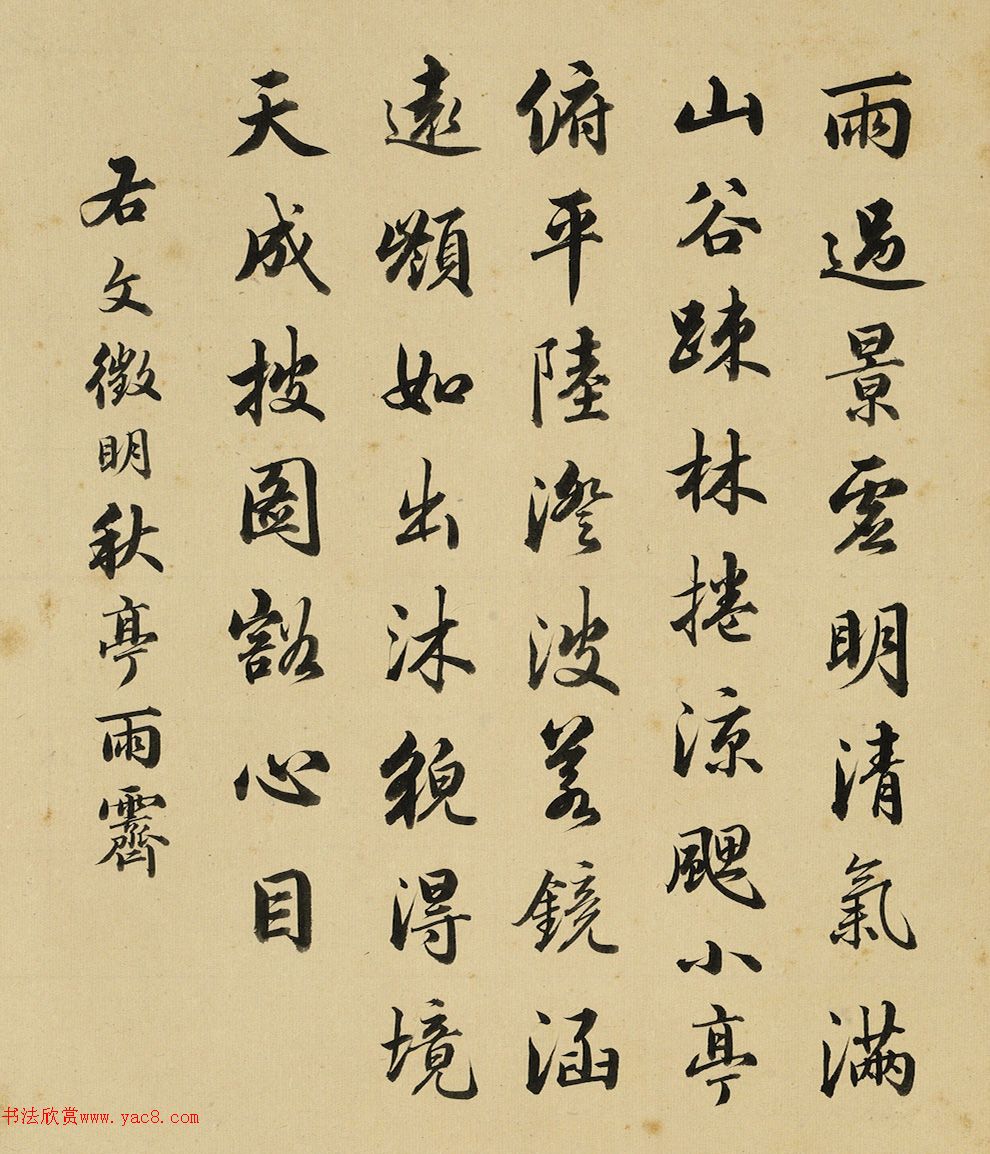 雨過景虛明清氣滿
山谷踈林捲涼颸小亭
俯平陸澄波若鏡涵
遠巘如出沐貌得境
天成披圖豁心目
右文徵明秋亭雨霽
书法欣赏www.yac8.com